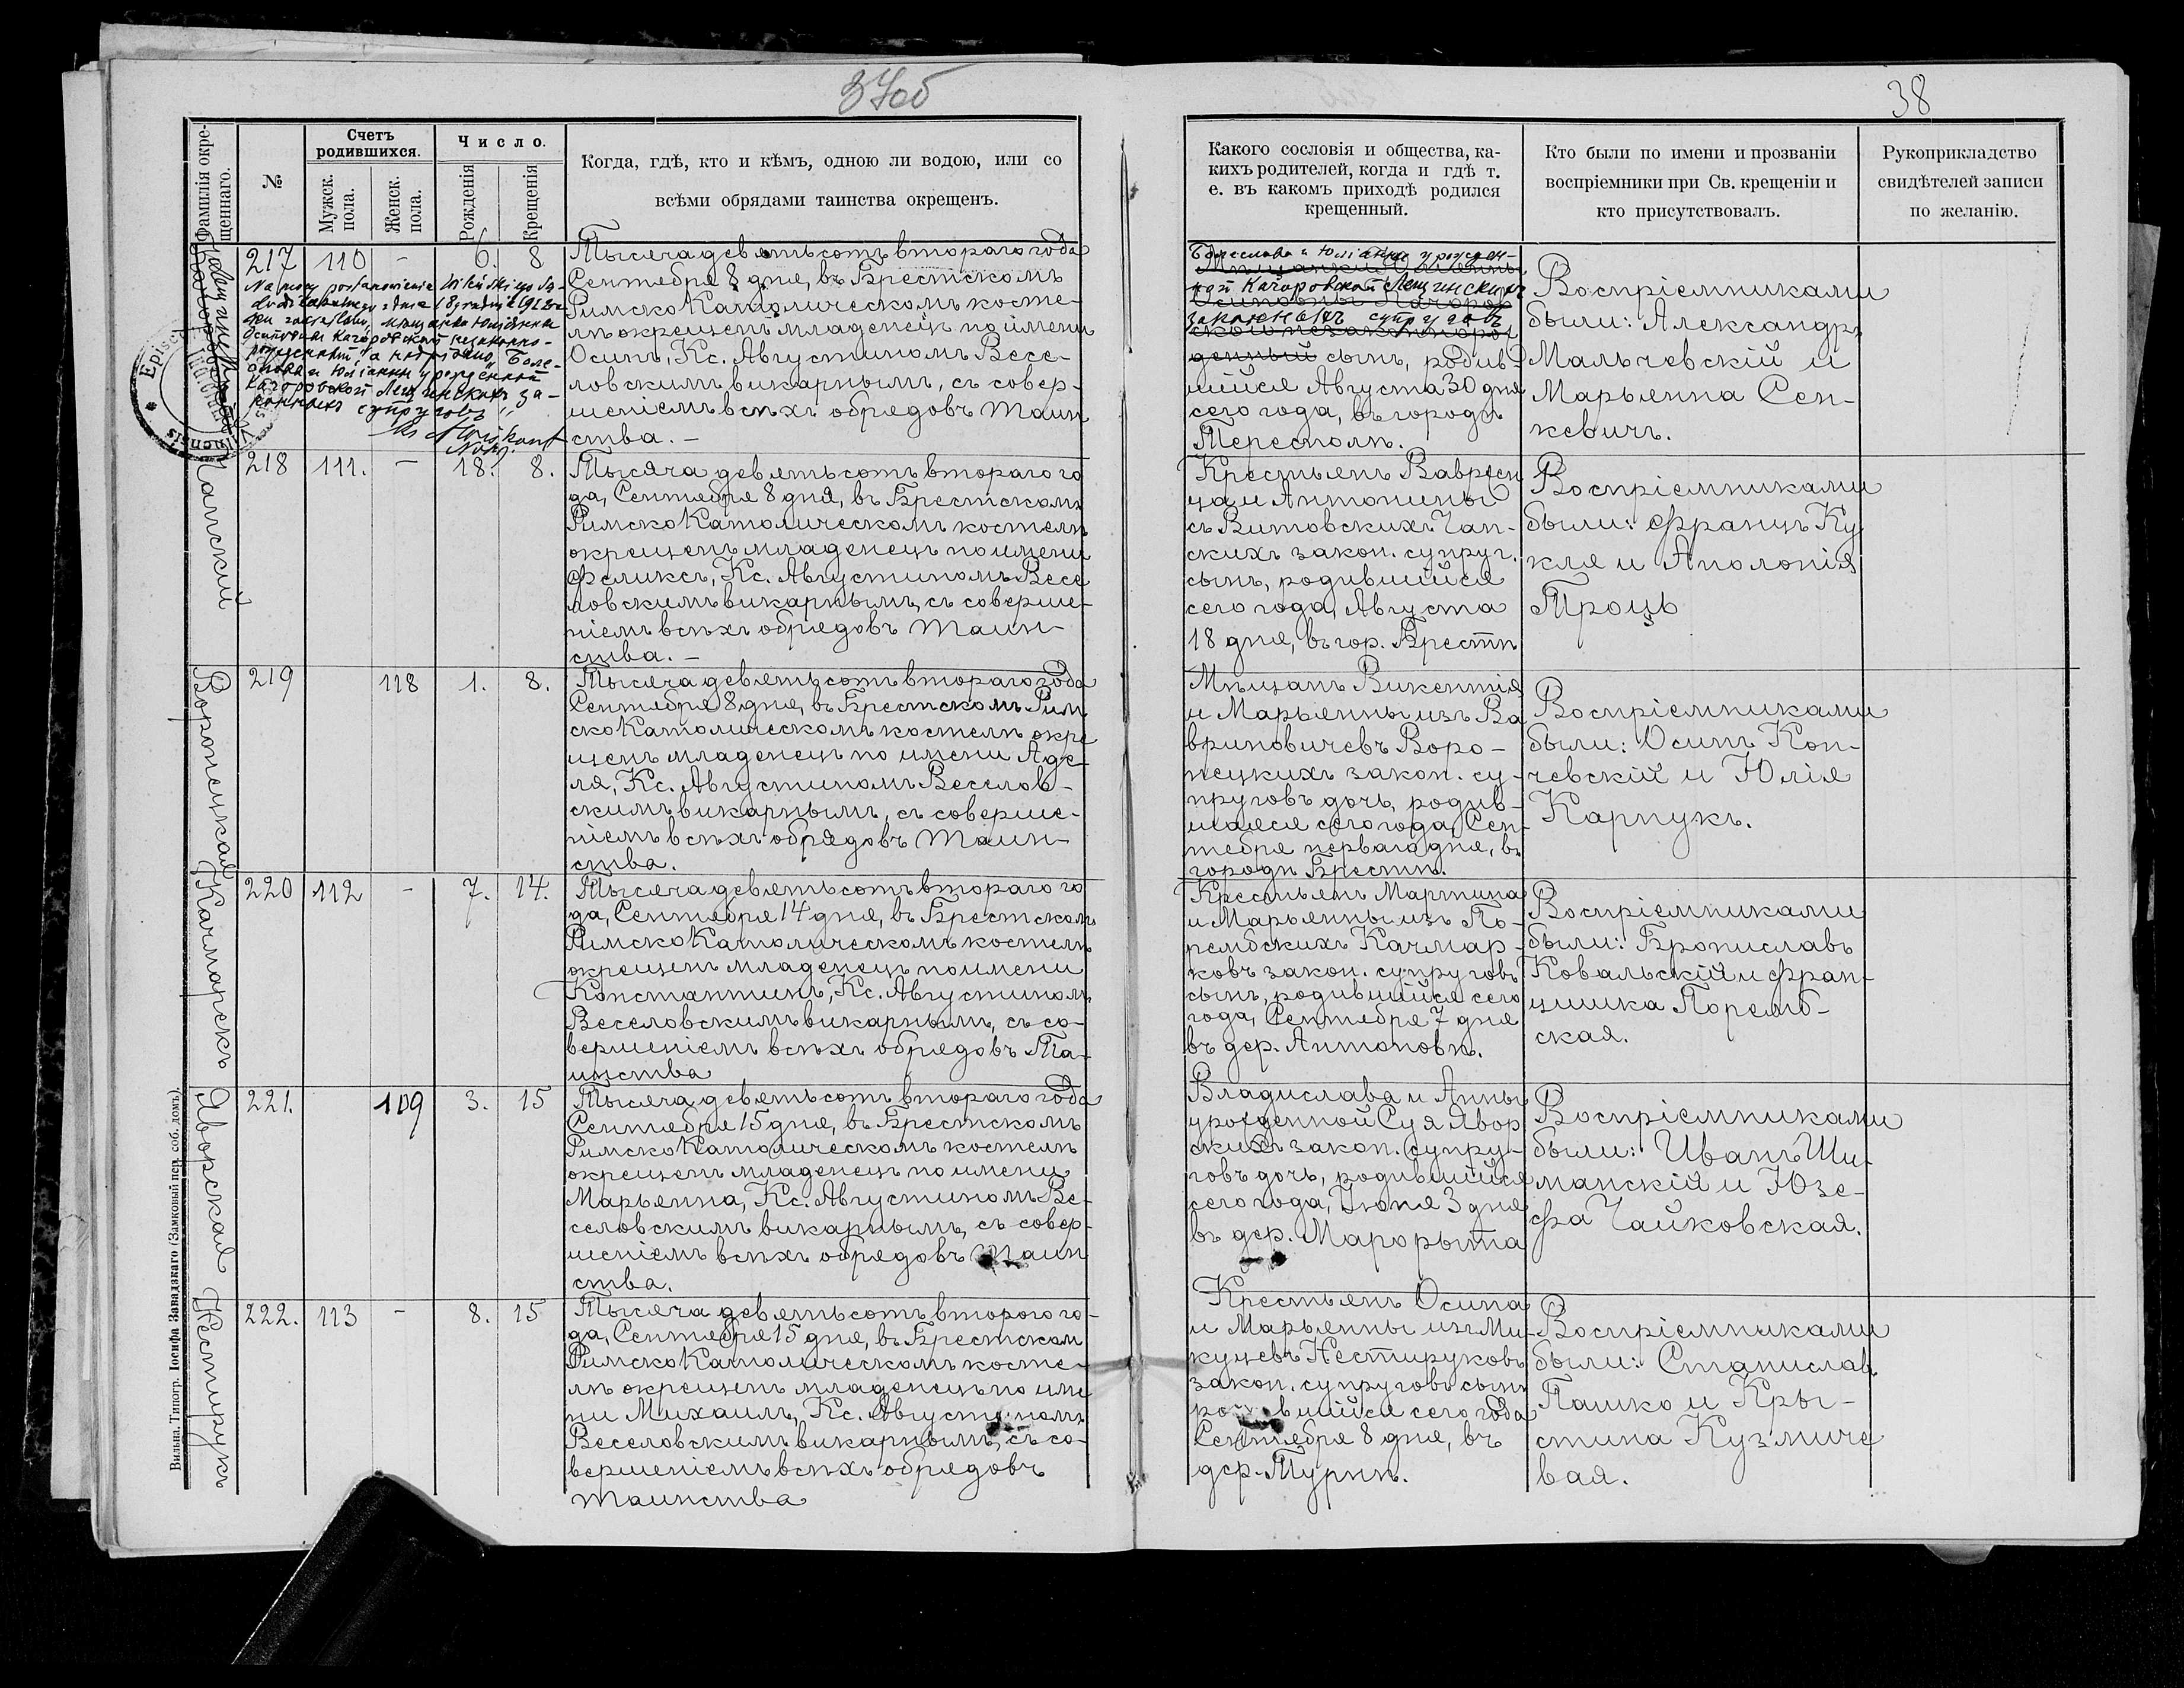 37об
38
Фамилія окре-
щеннаго.
№
Счетъ
родившихся.
Мужск.
пола.
Женск.
пола.
Число.
Рожденія
Крещенія
Когда, гдѣ, кто и кѣмъ, одною ли водою, или со
всѣми обрядами таинства окрещенъ.
Какого сословія и общества, ка-
кихъ родителей, когда и гдѣ т.
е. въ какомъ приходѣ родился
крещенный.
Кто были по имени и прозваніи
воспріемники при Св. крещеніи и
кто присутствовалъ.
Рукоприкладство
свидѣтелей записи
по желанію.
217 110 - 6. 8
Na mocy postanowienia Wileńskiego Są-
du 18 grudnia 1913 ro-
мѣщанки Юліанны
Осиповны Кагоровской незаконно-
рожденный " а " Боле-
слава и Юліанны урожденной
Кагоровской Лещинскихъ за-
конныхъ супруговъ"
Тысяча девятьсотъ втораго года
Сентября 8 дня, въ Брестскомъ
Римско Католическомъ косте-
лѣ окрещенъ младенецъ по имени
Осипъ, Кс. Августиномъ Весе-
ловскимъ викарнымъ, съ совер-
шеніемъ всѣхъ обрядовъ Таин
ства. -
Болеслава и Юліанны урожден-
ной Кагоровской Лещинскихъ
законныхъ супруговъ
сынъ, родив-
шійся Августа 30 дня
сего года, въ городѣ
Тересполѣ.
Воспріемниками
были: Александръ
Мальчевскій и
Марьянна Сен-
кевичъ.
Чапскій
218 111. - 18. 8.
Тысяча девятьсотъ втораго го
да, Сентября 8 дня, въ Брестскомъ
Римско Католическомъ костелѣ
окрещенъ младенецъ по имени
Феликсъ, Кс. Августиномъ Весе
ловскимъ викарнымъ, съ соверше-
ніемъ всѣхъ обрядовъ Таин-
ства. -
Крестьянъ Вавресн
ца и Антонины
съ Витовскихъ Чап-
скихъ закон. супруг.
сынъ, родившійся
сего года, Августа
18 дня, въ гор. Брестѣ
Воспріемниками
были: Францъ Ку
кля и Аполонія
Троць
Воронецкая
219 118 1. 8.
Тысяча девятьсотъ втораго года
Сентября 8 дня, въ Брестскомъ Рим
ско Католическомъ костелѣ окре
щенъ младенецъ по имени Аде-
ля, Кс. Августиномъ Веселов-
скимъ викарнымъ, съ соверше-
ніемъ всѣхъ обрядовъ Таин-
ства.
Мѣщанъ Викентія
и Марьянны изъ Ва
вриновичевъ Воро-
нецкихъ закон. су-
пруговъ дочь, родив-
шаяся сего года, Сен-
тября перваго дня, въ
городѣ Брестѣ.
Воспріемниками
были: Осипъ Кон-
чевскій и Юлія
Карпукъ.
Качмарекъ
220 112 - 7. 14.
Тысяча девятьсотъ втораго го
да, Сентября 14 дня, въ Брестскомъ
Римско Католическомъ костелѣ
окрещенъ младенецъ по имени
Константинъ, Кс. Августиномъ
Веселовскимъ викарнымъ, съ со-
вершеніемъ всѣхъ обрядовъ Та-
инства
Крестьянъ Мартина
и Марьянны изъ По-
рембскихъ Качмар-
ковъ закон. супруговъ
сынъ, родившійся сего
года, Сентября 7 дня
въ дер. Антоновѣ.
Воспріемниками
были: Брониславъ
Ковальскій и Фран-
цишка Поремб-
ская.
Яворская
221. 109 3. 15
Тысяча девятьсотъ втораго года
Сентября 15 дня, въ Брестскомъ
Римско Католическомъ костелѣ
окрещенъ младенецъ по имени
Марьянна, Кс. Августиномъ Ве-
селовскимъ викарнымъ, съ совер-
шеніемъ всѣхъ обрядовъ Таин
ства.
Владислава и Анны
урожденной Суя Явор
скихъ закон. супру-
говъ дочь, родившійся
сего года, Іюня 3 дня
въ дер. Марорыта
Воспріемниками
были: Иванъ Ши-
манскій и Юзе-
фа Чайковская.
Нестирукъ
222. 113 - 8. 15
Тысяча девятьсотъ второго го-
да, Сентября 15 дня, въ Брестском
Римско Католическомъ косте-
лѣ окрещенъ младенецъ по име
ни Михаилъ, Кс. Августиномъ
Веселовскимъ викарнымъ, съ со-
вершеніемъ всѣхъ обрядовъ
таинства
Крестьянъ Осипа
и Марьянны изъ Ми-
куцевъ Нестируковъ
закон. супруговъ сынъ
родившійся сего года
Сентября 8 дня, въ
дер. Турнѣ.
Воспріемниками
были: Станиславъ
Пашко и Кры-
стина Кузмиче
вая.
Вильна. Типогр. Іосифа Завадзкаго (Замковый пер. соб. домъ).